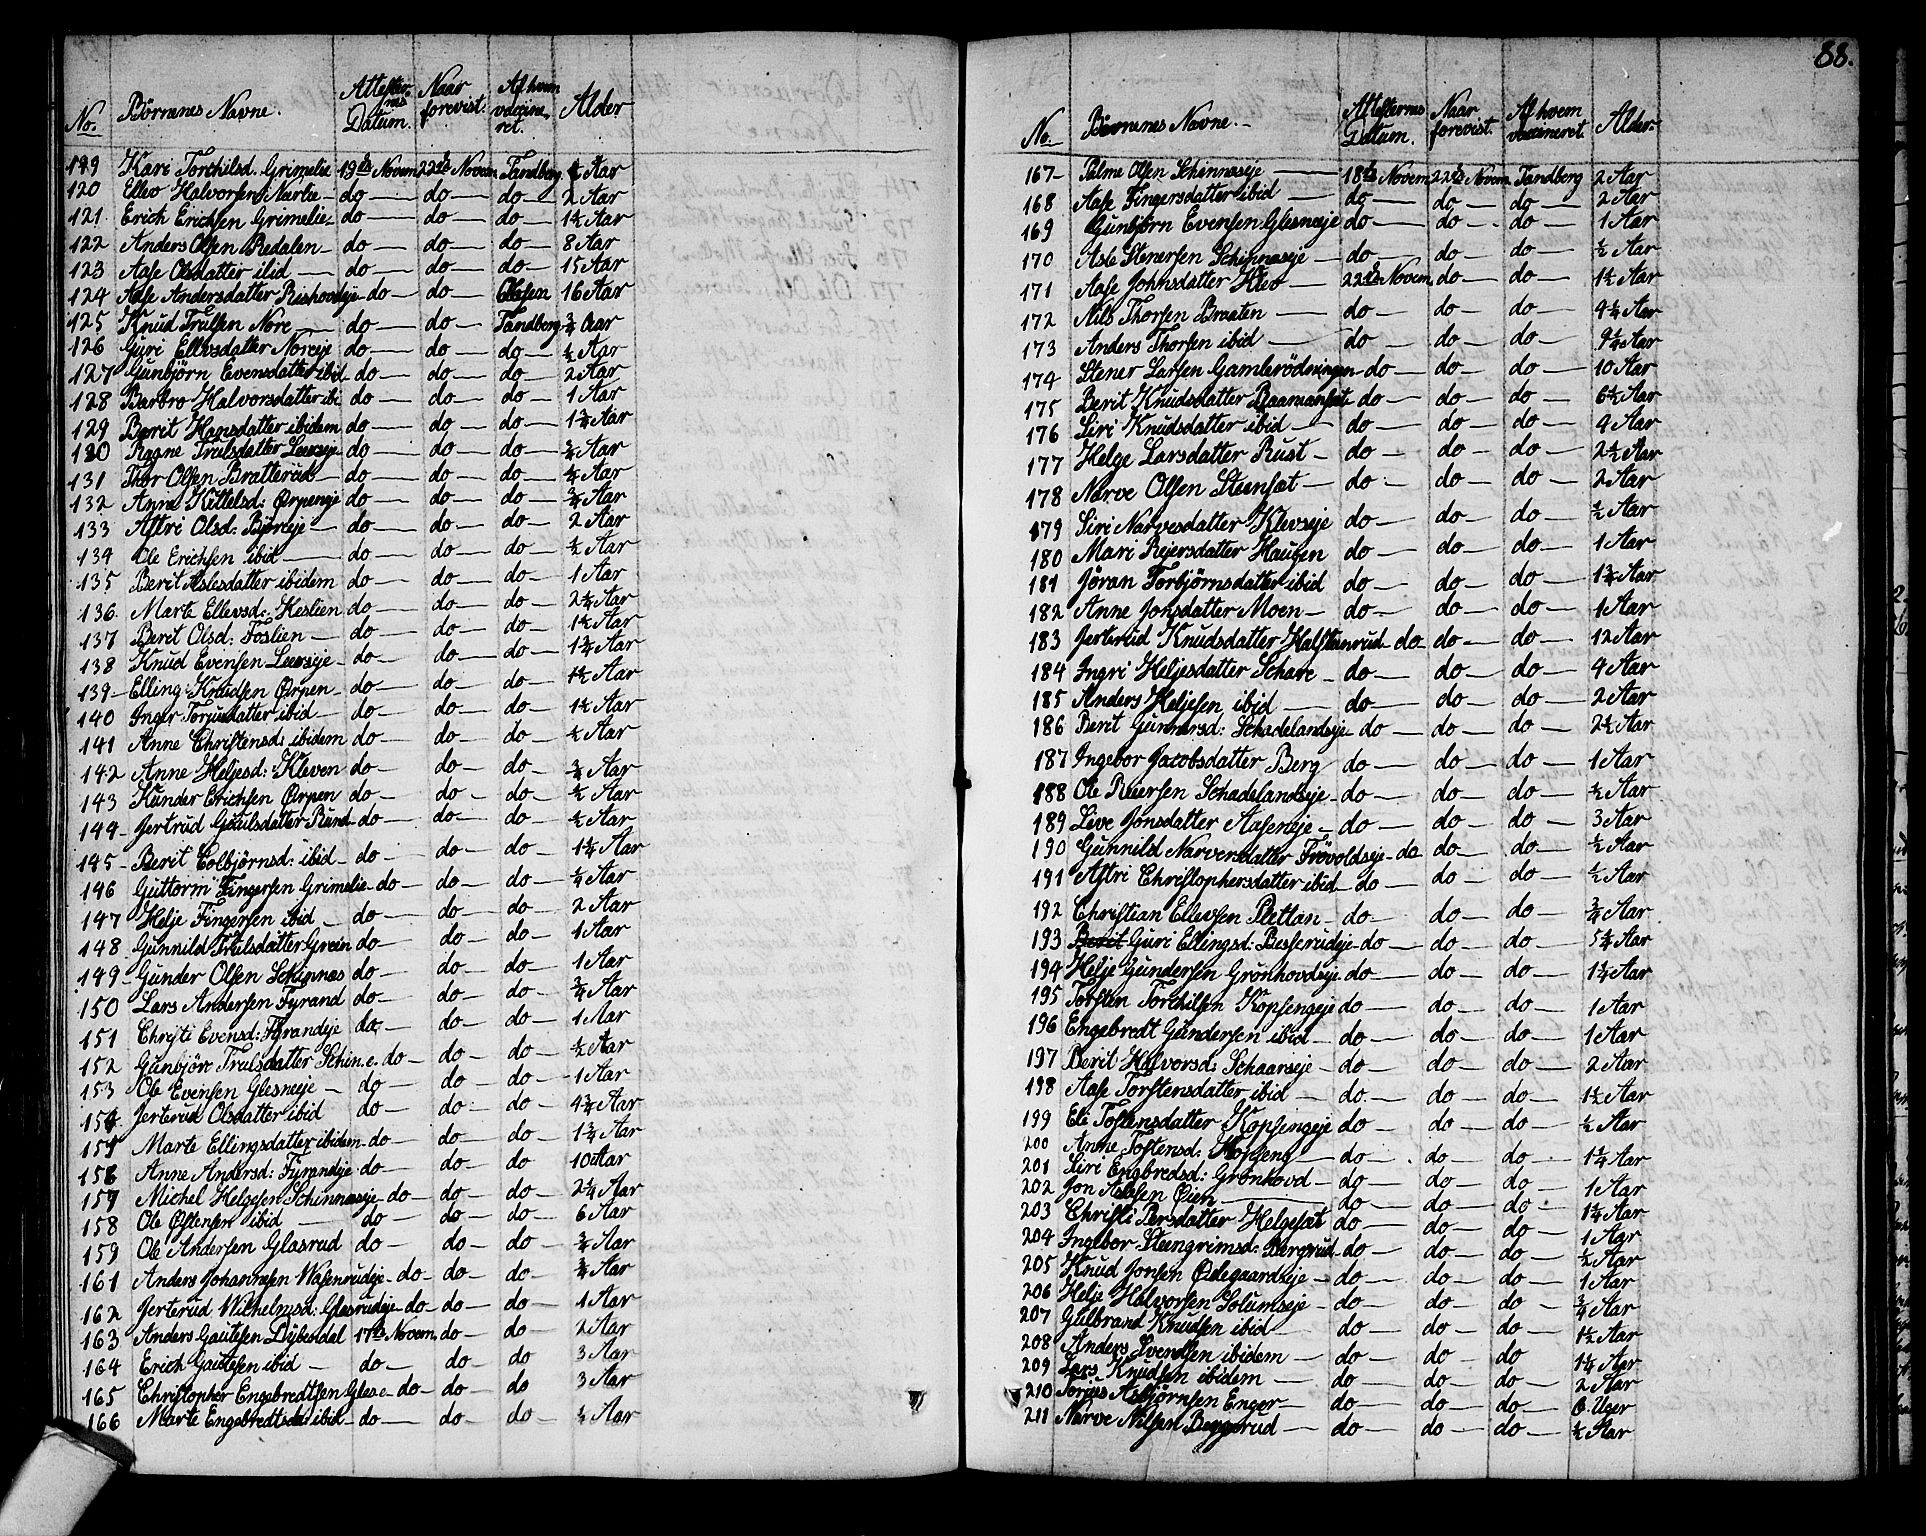 No. Börnenes Navne. Attesternes Datum. Naar forevist. Af hvem vaccineret. Alder
119 Kari Torchilsd. Grimelie 19de Novem 22de Novem Tandberg Aar
120 Ellev Halvorsen do do do 2 Aar
121. Erich Erichsen Grimelie do do do 1½ Aar
122 Anders Olsen Bedalen do do do 8 Aar
123 Aase Olsdatter ibid do do do 15 Aar
124 Aase Andersdatter Rishovdeje do do Olsen 16 Aar
125 Knud Trulsen Nore do do Tandberg ¾ Aar
126 Guri Ellevsdatter Noreje do do do ½ Aar
127 Gunbjörn Evensdatter ibid do do do 2 Aar
128 Barbro Halvorsdatter ibi do do do 1 Aar
129 Berit Hansdatter ibidem do do do 1¾ Aar
130 Ragne Trulsdatter Leerseje do do do ¾ Aar
131 Thor Olsen Bratterud do do do ¼ Aar
132 Anne Kittelsd: Ørpeneje do do do ¾ Aar
133 Astri Olsd: Björeje do do do 2 Aar
134 Ole Erichsen ibid do do do ½ Aar
135 Berit Aslesdatter ibidem do do do 1 Aar
136 Marte Ellevsd: Heslien do do do 2¼ Aar
137 Berit Olsd: Foslien do do do 1½ Aar
138 Knud Evensen Leerseje do do do 1¾ Aar
139 Elling Knudsen Ørpen do do do 1½ Aar
140 Inger Torjusdatter ibid do do do 1½ Aar
141 Anne Christensd: ibidem do do do ½ Aar
142 Anne Heljesd: Kleven do do do ¾ Aar
143 Kunder Erichsen Ørpen do do do ½ Aar
144 Jertrud Gaulsdatter Rund do do do ½ Aar
145 Berit Colbjörnsd: ibid do do do 1¼ Aar
146 Guttorm Fingersen Grimelie do do do ¼ Aar
147 Helje Fingersen ibid do do do 2 Aar
148 Gunnild Trulsdatter Green do do do 1 Aar
149 Gunder Olsen Sckinnes do do do 1 Aar
150 Lars Andersen Fyrand do do do ¾ Aar
151 Christi Evensd: Fyrandeje do do do 1 Aar
152 Gunbjör Trulsdatter Schin.e. do do do ½ Aar
153 Ole Evensen Glesneeje do do do 1 Aar
154 Jerterud Olsdatter ibid do do do 4¾ Aar
157 Marte Ellingsdatter ibidem do do do 1¾ Aar
156 Anne Andersd: Fyrandeje do do do 10 Aar
157 Michel Helgesen Schinnesseje do do do 2¼ Aar
158 Ole Østensen ibid do do do 6 Aar
159 Ole Andersen Glasrud do do do ¾ Aar
161 Anders Johannesen Wasenrudeje do do do ¾ Aar
162 Jerterud Wilhelmsd: Glasrudeje do do do 1 Aar
163 Anders Gautesen Dybendal 17de Novem do do 2 Aar
164 Erich Gautesen ibid do do do 3 Aar
165 Christopher Engebredtsen Glese do do do 3 Aar
166 Marte Engebredtsd: ibid do do do ½ Aar
88.
No. Börnenes Navne. Attesternes Datum. Naar forevist. Af hvem vaccineret. Alder.
167 Palme Olsen Schinneseje 18de Novem 22de Novem Tandberg 2 Aar
168 Aase Fingersdatter ibid do do do 2 Aar
169 Gunbjörn Evensen Glesneeje do do do 1 Aar
170 Asle Stenersen Schinneseje do do do ½ Aar
171 Aase Johnsdatter Klev 22de Novem do do 1½ Aar
172 Nils Thorsen Braaten do do do 4¼ Aar
173 Anders Thorsen ibid do do do 9¼ Aar
174 Stener Larsen Gamlerödningen do do do 10 Aar
175 Berit Knudsdatter do do do 6½ Aar
176 Siri Knudsdatter ibid do do do 4 Aar
177 Helge Larsdatter Rust do do do 2½ Aar
178 Narve Olsen Steenset do do do 2 Aar
179 Siri Narvesdatter Klevseje do do do ½ Aar
180 Mari Rejersdatter Haugen do do do 1 Aar
181 Jöran Torbjörnsdatter ibid do do do 1¾ Aar
182 Anne Jonsdatter Moen do do do 1 Aar
183 Jerterud Knudsdatter Halstenrud do do do 12 Aar
184 Ingri Heljesdatter Schare do do do 4 Aar
185 Anders Heljesen ibid do do do 2 Aar
186 Berit Gunnersd: Schadelandseje do do do 2½ Aar
187 Ingebor Jacobsdatter Berg do do do 1 Aar
188 Ole Reersen Schadelandseje do do do ½ Aar
189 Live Jonsdatter Aaseneje do do do 3 Aar
190 Gunnild Narversdatter Frövoldseje do do do ½ Aar
191 Astri Christophersdatter ibid do do do ½ Aar
192 Christian Ellevsen Plettan do do do ¾ Aar
193 Berit Guri Ellingsd: Besserudeje do do do 5¾ Aar
194 Helje Gundersen Grönhovdeje do do do 1¼ Aar
195 Torsten Torchilsen Kopsengeje do do do 1 Aar
196 Engebredt Gundersen ibid do do do 1 Aar
197 Berit Halvorsd: Schaarseje do do do 2 Aar
198 Aase Torstensdatter ibid do do do 1½ Aar
199 Eli Tostensdatter Kopsengeje do do do ½ Aar
200 Anne Tostensd: Kopseng do do do 1¼ Aar
201 Siri Engebredsd: Grönhovd do do do 1 Aar
202 Jon Aslesen Øien do do do 1¼ Aar
203 Christi Persdatter Helgeset do do do 1 Aar
204 Ingebor Steengrimsd: Bergrud do do do ½ Aar
205 Knud Jonsen Ødegaardseje do do do 1 Aar
206 Helje Halvorsen Solumseje do do do ¾ Aar
207 Gulbrand Knudsen ibid do do do 1½ Aar
208 Anders Svendsen ibidem do do do 1¼ Aar
209 Lars Knudsen ibidem do do do 2 Aar
210 Torjus Asbjörnsen Enger do do do 6 Uger
211 Narve Nilsen Beggerud do do do ½ Aar